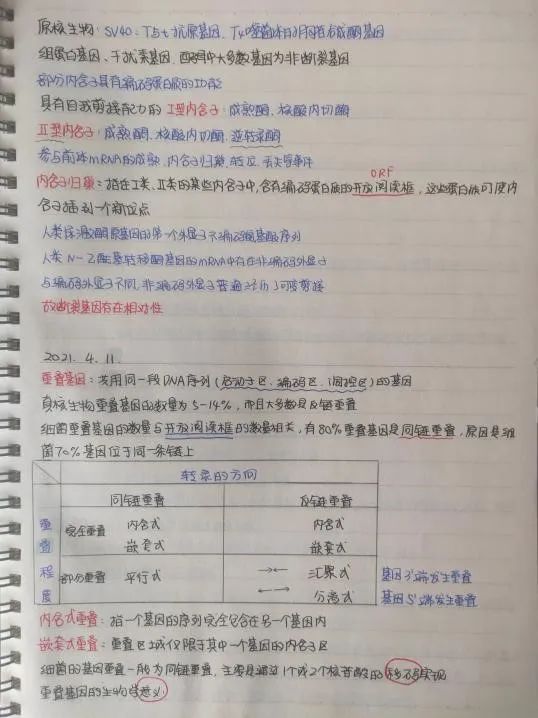 原核生物:SV40:T5t抗原基因、T4噬菌体的胸苷合成酶基因
组蛋白基因、干扰素基因、酵母中大多数基因为非断裂基因
部分内含子具有编码蛋白质的功能
具有自我剪接能力的I型内含子:成熟酶、核酸内切酶
II型内含子:成熟酶、核酸内切酶、逆转录酶
参与前体mRNA的成熟、内含子归巢、转位、丢失等事件
ORF
内含子归巢:指在I类、II类的某些内含子中,含有编码蛋白质的开放阅读框,这些蛋白质可使内
含子插到一个新位点
人类尿激酶原基因的第一个外显子不编码氨基酸序列
人类N-乙酰基转移酶基因的mRNA中存在非编码外显子
与编码外显子不同,非编码外显子普遍经历了可变剪接
故断裂基因存在相对性
2021.4.11.
重叠基因:共用同一段DNA序列(启动子区、编码区、调控区)的基因
真核生物重叠基因的数量为5-14%,而且大多数是反链重叠
细菌重叠基因的数量与开放阅读框的数量相关,有80%重叠基因是同链重叠,原因是细
菌70%基因位于同一条链上
转录的方向
同链重叠 反链重叠
重叠程度
完全重叠 内含式 内含式
嵌套式 嵌套式
部分重叠 平行式 →← 汇聚式 基因3'端发生重叠
←→ 分离式 基因5'端发生重叠
内含式重叠:指一个基因的序列完全包含在另一个基因内
嵌套式重叠:重叠区域仅限于其中一个基因的内含子区
细菌的基因重叠一般为同链重叠,主要是通过1个或2个核苷酸的移码实现
重叠基因的生物学意义: